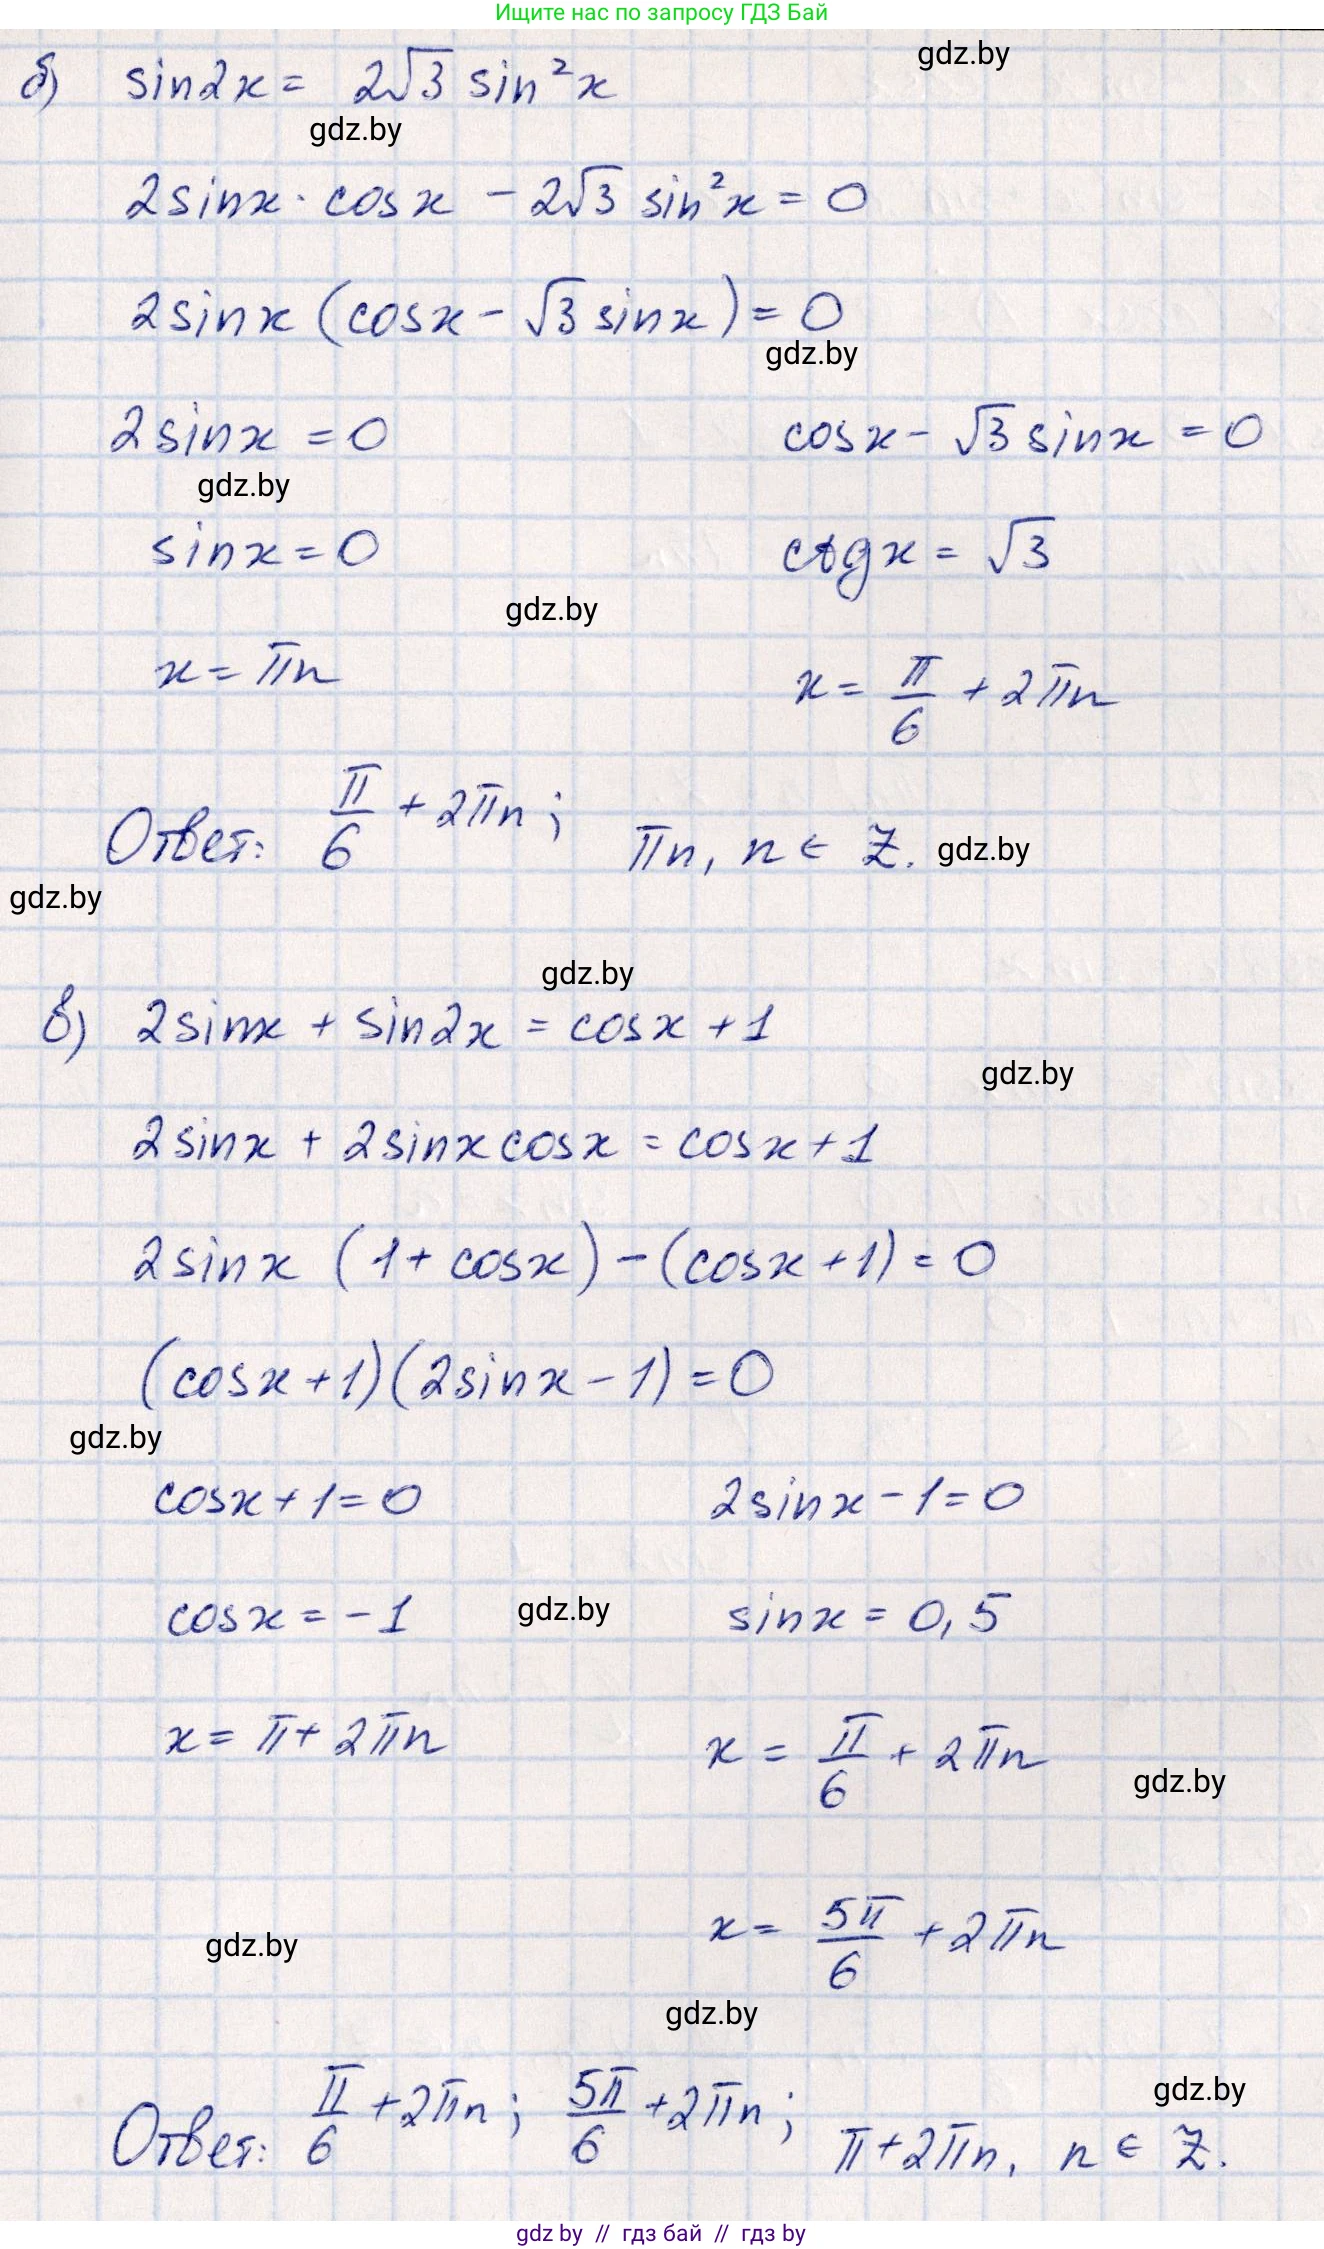 Ищите нас по запросу ГДЗ Бай
gdz.by
б) sin2x = 2√3 sin²x
gdz.by
2sinx · cosx − 2√3 sin²x = 0
2sinx (cosx − √3 sinx) = 0
gdz.by
2sinx = 0 cosx − √3 sinx = 0
gdz.by
sinx = 0 ctgx = √3
gdz.by
x = πn x = π/6 + 2πn
Ответ: π/6 + 2πn; πn, n ∈ Z. gdz.by
gdz.by
gdz.by
в) 2sinx + sin2x = cosx + 1
gdz.by
2sinx + 2sinxcosx = cosx + 1
2sinx (1 + cosx) − (cosx + 1) = 0
(cosx + 1)(2sinx − 1) = 0
gdz.by
cosx + 1 = 0 2sinx − 1 = 0
cosx = −1 gdz.by sinx = 0,5
x = π + 2πn x = π/6 + 2πn
gdz.by
x = 5π/6 + 2πn
gdz.by
gdz.by
gdz.by
Ответ: π/6 + 2πn; 5π/6 + 2πn; π + 2πn, n ∈ Z.
gdz by // гдз бай // гдз by